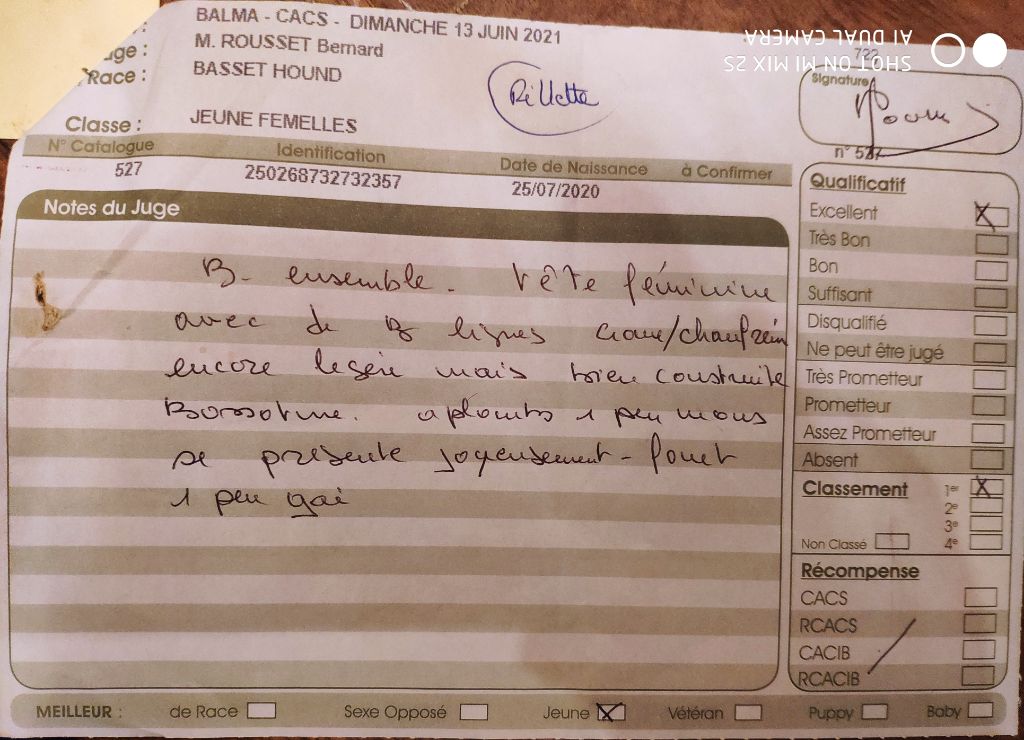 BALMA - CACS - DIMANCHE 13 JUIN 2021
uge : M. ROUSSET Bernard
Race : BASSET HOUND
Rillette
Classe : JEUNE FEMELLES
N° Catalogue Identification Date de Naissance à Confirmer
527 250268732732357 25/07/2020
722
Signature
n° 527
Notes du Juge
B. ensemble. Tête féminine
avec de B lignes crane/chanfrein
encore legère mais bien construite
aplombs 1 peu mous
se présente joyeusement - fouet
1 peu gai
Qualificatif
Excellent X
Très Bon
Bon
Suffisant
Disqualifié
Ne peut être jugé
Très Prometteur
Prometteur
Assez Prometteur
Absent
Classement 1er X
2e
3e
Non Classé 4e
Récompense
CACS
RCACS
CACIB
RCACIB
MEILLEUR : de Race Sexe Opposé Jeune X Vétéran Puppy Baby
SHOT ON MI MIX 2S
AI DUAL CAMERA